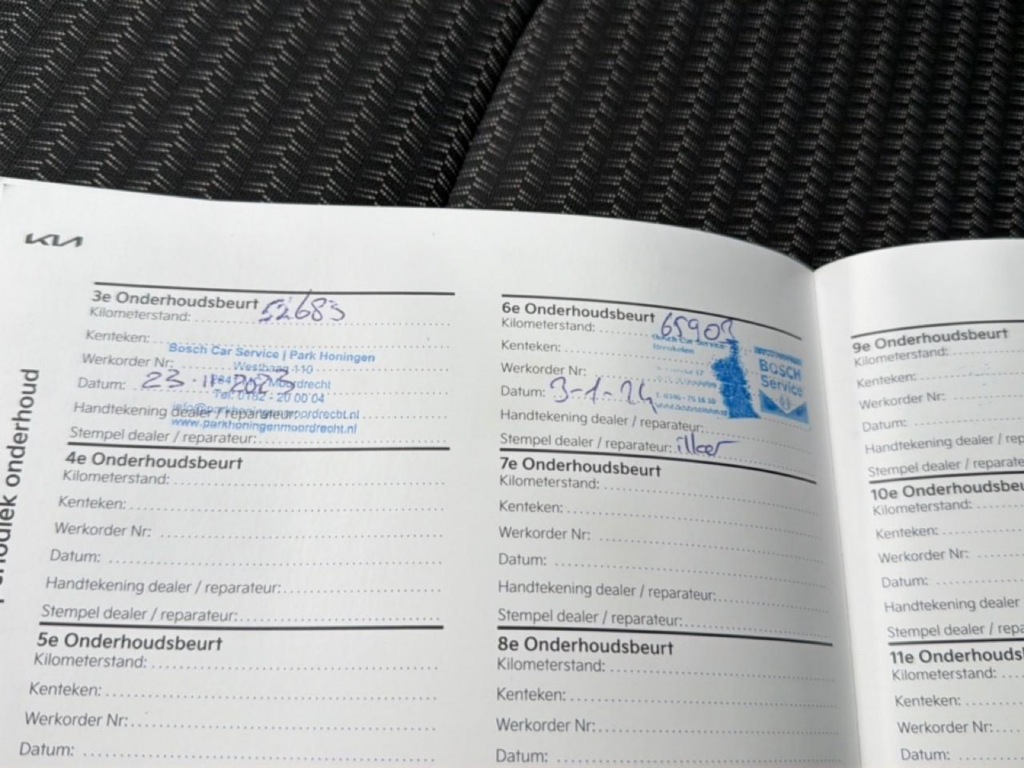 KIA
periodiek onderhoud
3e Onderhoudsbeurt
Kilometerstand: 52683
Kenteken:
Bosch Car Service | Park Honingen
Werkorder Nr:
Westbaan 110
Datum: 23-11-2023
Moordrecht
Tel: 0182 - 20 00 04
Handtekening dealer / reparateur:
www.parkhoningenmoordrecht.nl
Stempel dealer / reparateur:
4e Onderhoudsbeurt
Kilometerstand:
Kenteken:
Werkorder Nr:
Datum:
Handtekening dealer / reparateur:
Stempel dealer / reparateur:
5e Onderhoudsbeurt
Kilometerstand:
Kenteken:
Werkorder Nr:
Datum:
6e Onderhoudsbeurt
Kilometerstand: 65903
Kenteken:
Bosch Car Service
BOSCH
Service
Werkorder Nr:
Datum: 3-1-24
Handtekening dealer / reparateur:
Stempel dealer / reparateur: ilker
7e Onderhoudsbeurt
Kilometerstand:
Kenteken:
Werkorder Nr:
Datum:
Handtekening dealer / reparateur:
Stempel dealer / reparateur:
8e Onderhoudsbeurt
Kilometerstand:
Kenteken:
Werkorder Nr:
Datum:
9e Onderhoudsbeurt
Kilometerstand:
Kenteken:
Werkorder Nr:
Datum:
Handtekening dealer / rep
Stempel dealer / reparate
10e Onderhoudsbeu
Kilometerstand:
Kenteken:
Werkorder Nr:
Datum:
Handtekening dealer
Stempel dealer / repa
11e Onderhouds
Kilometerstand:
Kenteken:
Werkorder Nr:
Datum: